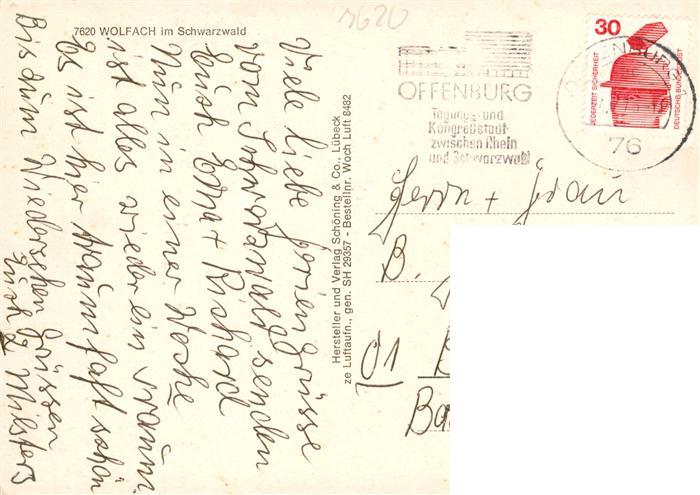 7620
7620 WOLFACH im Schwarzwald
Viele liebe Feriengrüsse
vom Schwarzwald senden
Euch Erna + Richard
Nun in einer Woche
ist alles wieder ein Traum.
Es ist hier traumhaft schön
Bis dum Wiedersehen Grüssen
Euch
Milsters
Hersteller und Verlag Schöning & Co., Lübeck
ze Luftaufn., gen. SH 29357 - Bestellnr. Woch Luft 8482
OFFENBURG
Tagungs- und
Kongreßstadt
zwischen Rhein
und Schwarzwald
OFFENBURG
76
30
JEDERZEIT SICHERHEIT
DEUTSCHE BUNDESPOST
Herrn + Frau
B.
01